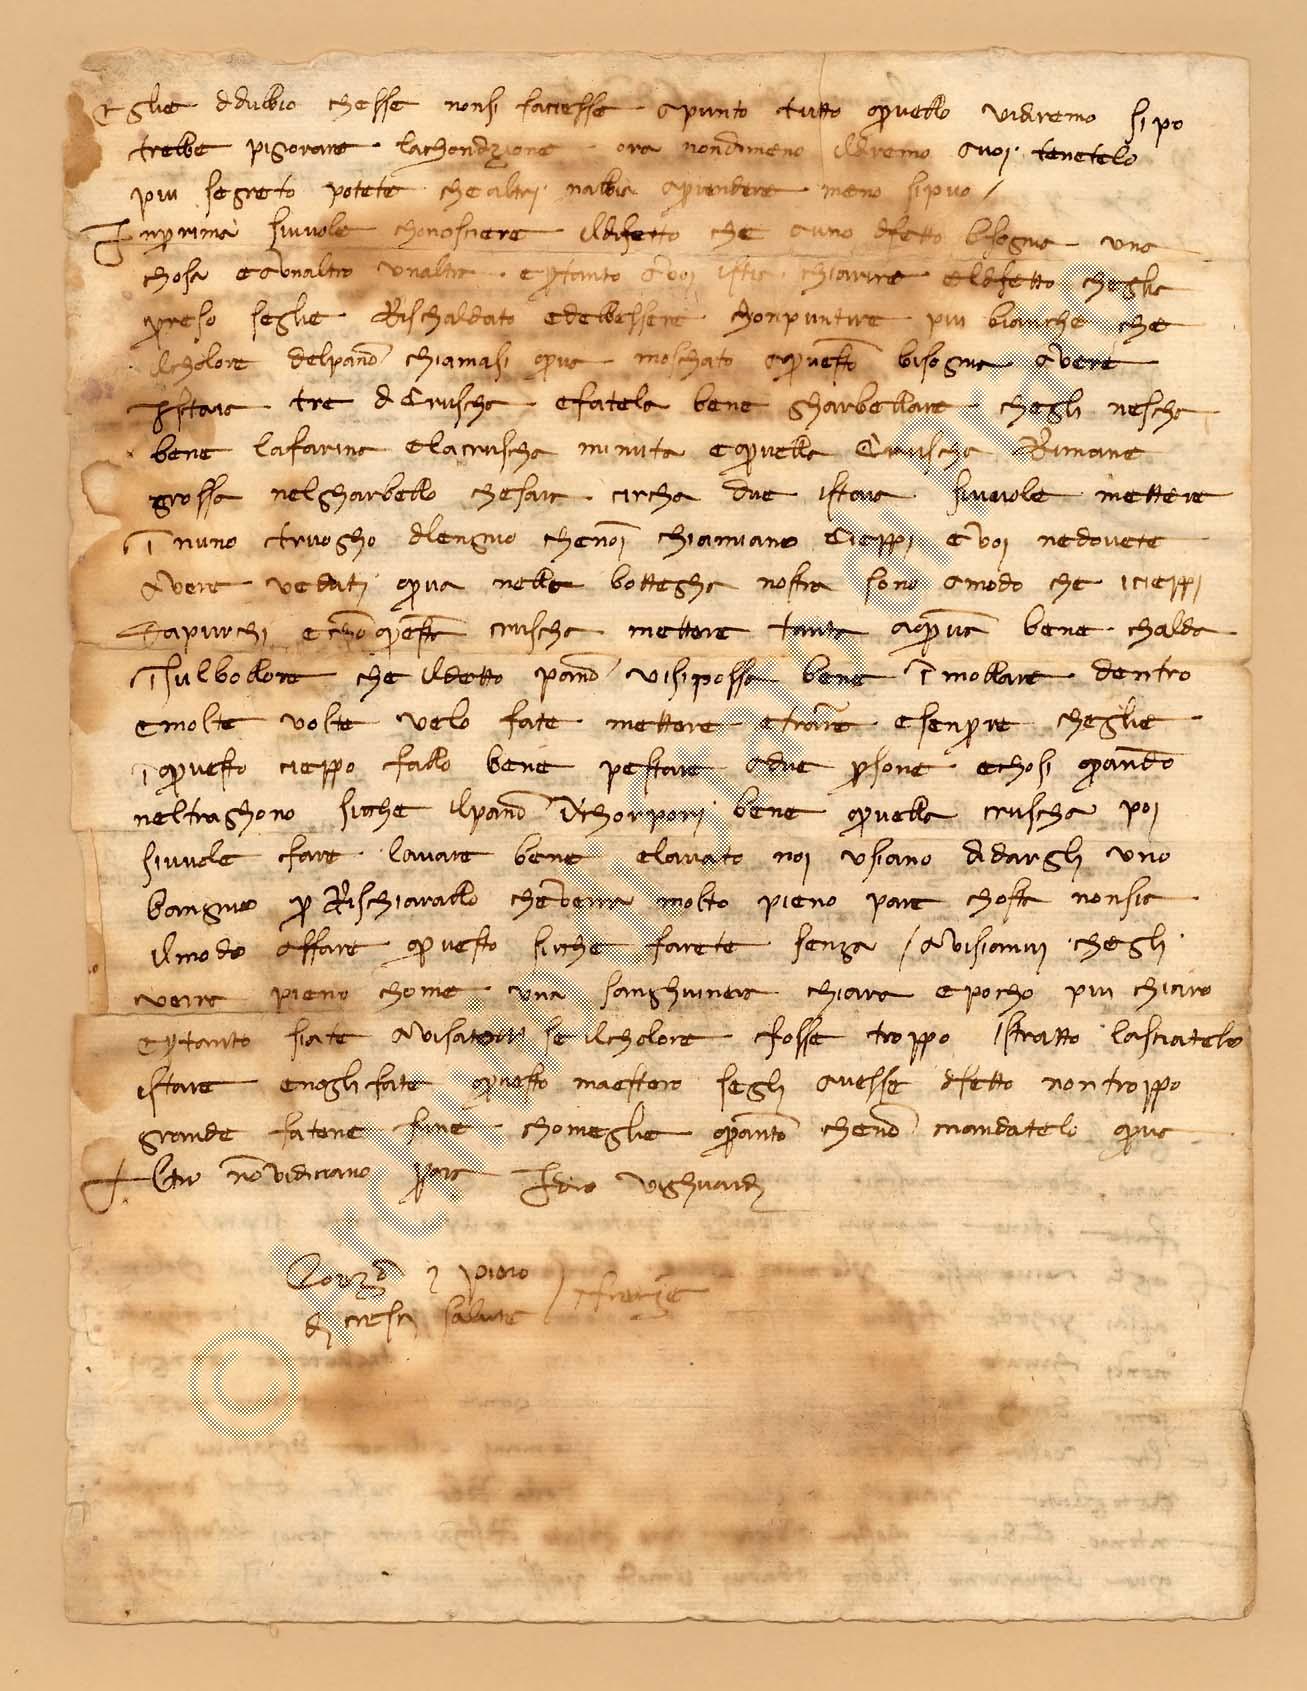 Eglie ddubio chesse nonsi faciesse apunto tutto quello vidiremo sipo
trebbe pigorare lachondizione ora nondimeno ildiremo avoi tenetelo
piu segreto potete chealtri nabia aprendere meno sipuo /
Inprima sivuole chonosciere ildifetto che auno difetto bisogna una
chosa eavnaltro vnaltra eptanto avoi ista chiarire eldifetto cheglia
preso seglie Rischaldato edebbessere chonpunture piu bianche che
ilcholore delpano chiamasi qua moschato aquesto bisogna avere
istaia tre di Cruscha efatela bene gharbellare chegli nescha
bene lafarina elacruscha minuta equella Cruscha Rimane
grossa nelgharbello chesara circha due istaia sivuole mettere
inuno truogho dlengno chenoi chiamiano Cieppi evoi nedovete
avere vedati qua nella bottegha nostra sono amodo che icieppi
Dapurchi echo questa cruscha mettere tanta aqua bene chalda
isulbollore che ildetto pano visipossa bene imollare dentro
emolte volte velo fate mettere etrare esenpre cheglie
iquesto cieppo fallo bene pestare adue psone echosi quando
neltraghono siche ilpano ichorpori bene quella cruscha poi
sivuole fare lavare bene elavato noi usiano didargli uno
bangno p Rischiarallo cheverra molto pieno pare chosta nonsia
ilmodo affare questo siche farete senza / avisianvi chegli
verra pieno chome una sanghuinea chiara epocho piu chiaro
eptanto siate avisato se ilcholore fosse troppo istratto lasciatelo
istare enogli fate questo maestero segli avesse difetto nontroppo
grande fatene fine chomeglie quanto cheno mandatelo qua
Altro no vidiciano pora Idio vighuardi
Lorenzo e piero
di cresci salute / Firenze
© Archivio di Stato di Prato